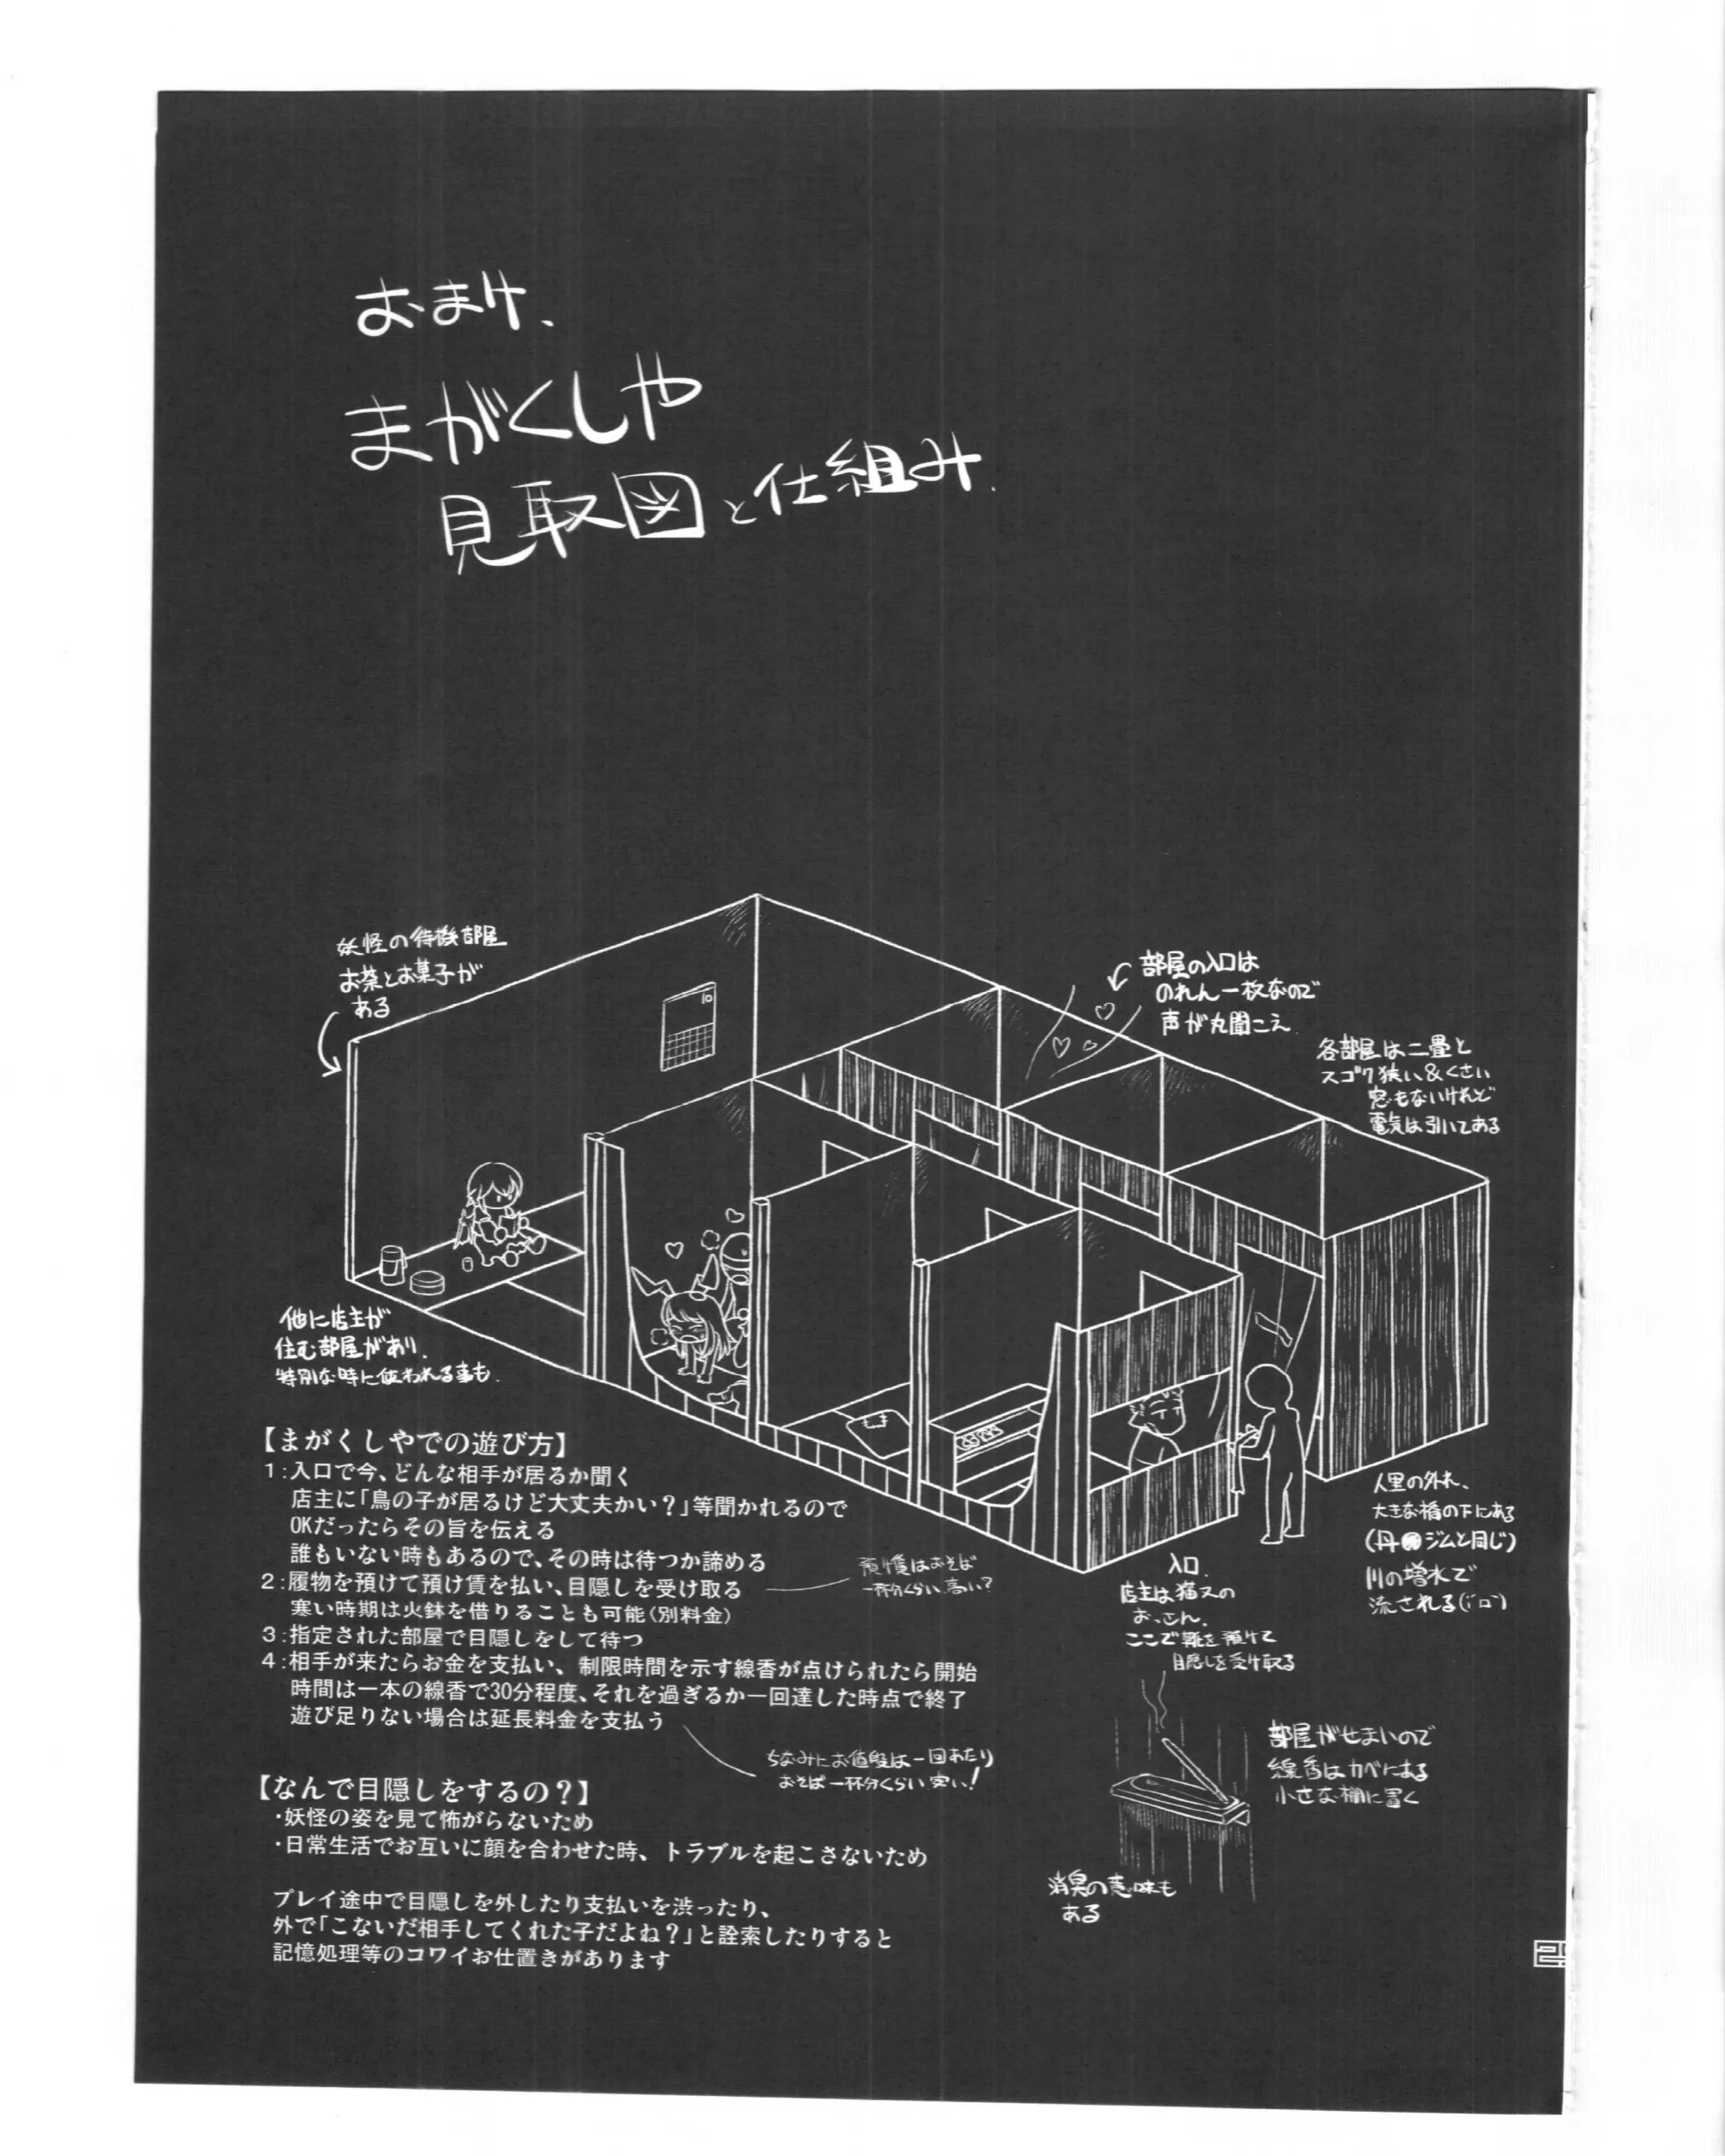 おまけ、
まがくしや
見取図と仕組み.
妖怪の待機部屋
お茶とお菓子が
ある
10
部屋の入口は
のれん一枚なので
声が丸聞こえ
各部屋は二畳と
スゴク狭い&くさい
窓もないけれど
電気は引いてある
他に店主が
住む部屋があり.
特別な時に使われる事も.
【まがくしやでの遊び方】
1:入口で今、どんな相手が居るか聞く
店主に「鳥の子が居るけど大丈夫かい?」等聞かれるので
OKだったらその旨を伝える
誰もいない時もあるので、その時は待つか諦める
2:履物を預けて預け賃を払い、目隠しを受け取る
寒い時期は火鉢を借りることも可能(別料金)
3:指定された部屋で目隠しをして待つ
4:相手が来たらお金を支払い、制限時間を示す線香が点けられたら開始
時間は一本の線香で30分程度、それを過ぎるか一回達した時点で終了
遊び足りない場合は延長料金を支払う
預け賃はおそば
一杯分くらい、高い?
ちなみにお値段は一回あたり
おそば一杯分くらい 安い!
【なんで目隠しをするの?】
・妖怪の姿を見て怖がらないため
・日常生活でお互いに顔を合わせた時、トラブルを起こさないため
プレイ途中で目隠しを外したり支払いを渋ったり、
外で「こないだ相手してくれた子だよね?」と詮索したりすると
記憶処理等のコワイお仕置きがあります
入口.
店主は猫又の
おっさん.
ここで靴を預けて
目隠しを受け取る
人里の外れ、
大きな橋の下にある
(丹●ジムと同じ)
川の増水で
流される
部屋がせまいので
線香はカベにある
小さな棚に置く
消臭の意味も
ある